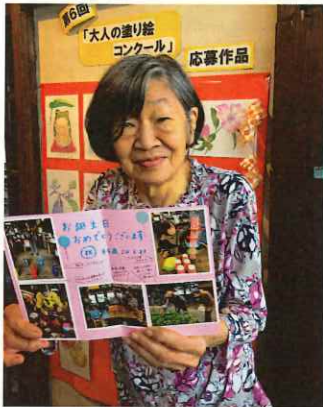 第6回
「大人の塗り絵
コンクール」
応募作品
お誕生日
おめでとうございます
祝